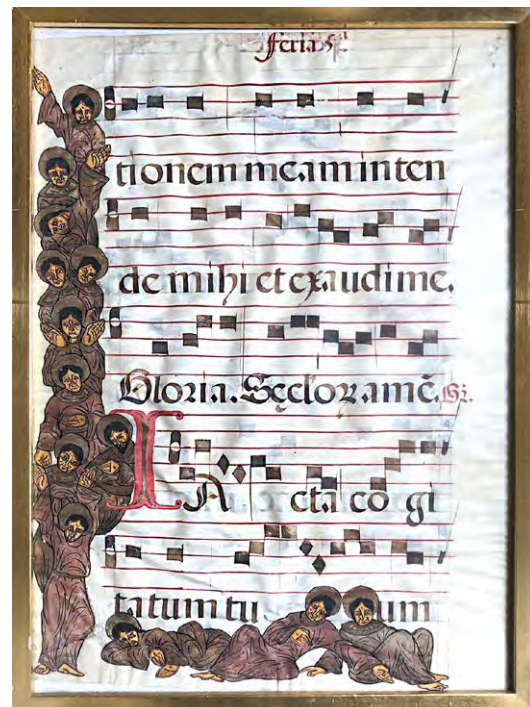 feria 5
tionem meam inten
de mihi et exaudi me.
Gloria. Seclor amē. Gr.
IActa cogi
tatum tuum